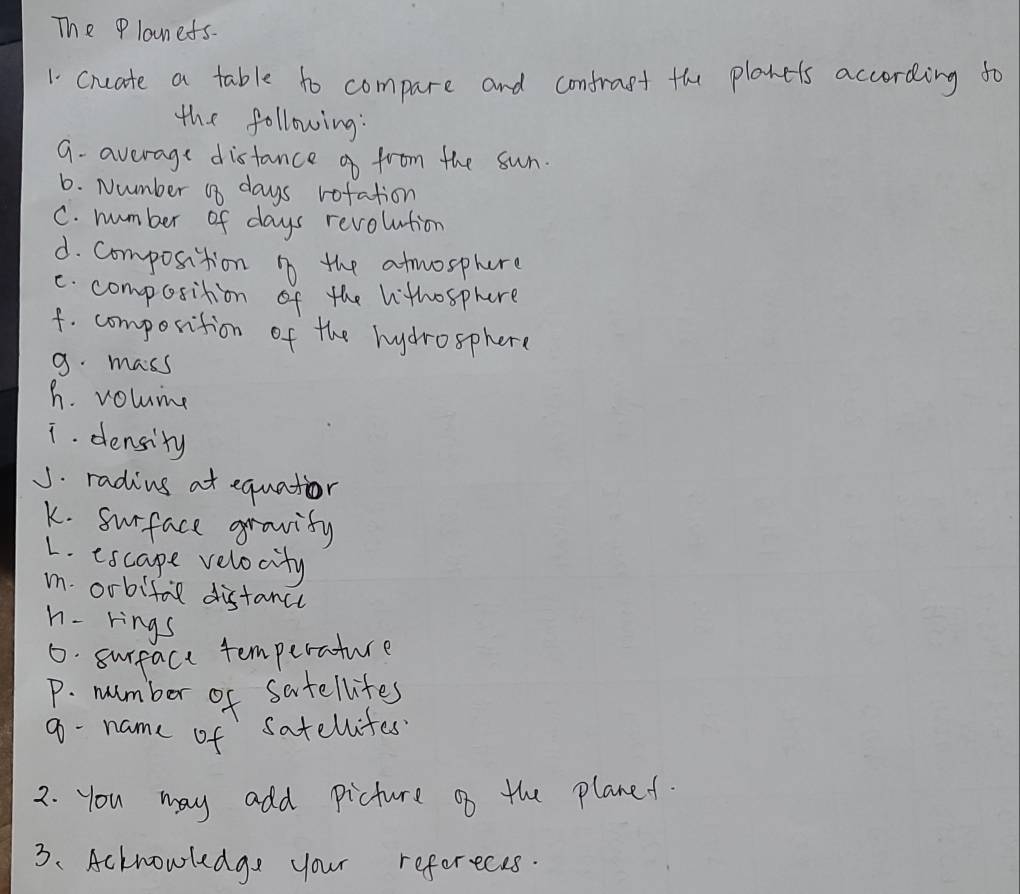 The Planets.
1. Create a table to compare and contrast the planets according to
the following:
a. average distance of from the sun.
b. Number of days rotation
c. number of days revolution
d. Composition of the atmosphere
e. composition of the lithosphere
f. composition of the hydrosphere
g. mass
h. volume
i. density
J. radius at equator
K. surface gravity
L. escape velocity
m. orbital distance
n- rings
o. surface temperature
P. number of satellites
q- name of satellites.
2. You may add picture of the planet.
3. Acknowledge your refereces.